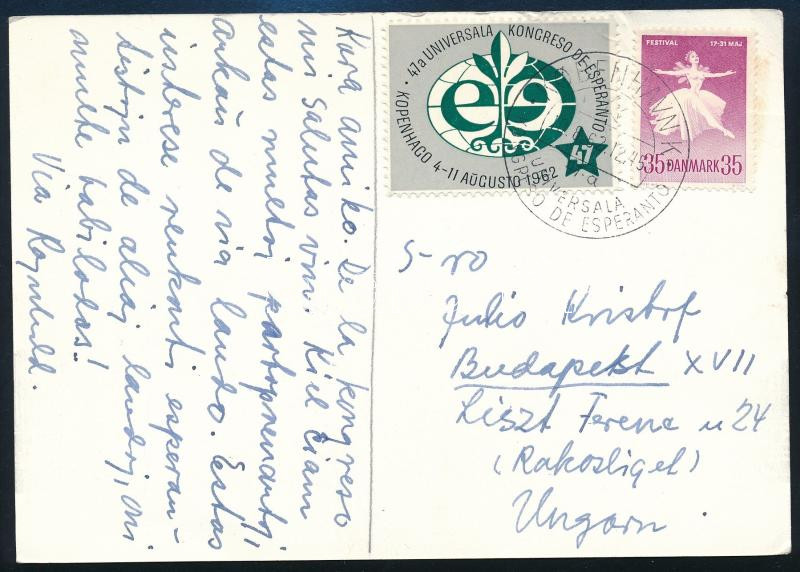 Kara amiko. De la kongreso
mi salutas vin. Kiel ĉiam
estas multaj partoprenantoj,
ankaŭ de via lando. Estas
interese renkonti esperan-
tistojn de aliaj landoj, oni
multe babiladas!
Via Ragnhild.
47a UNIVERSALA KONGRESO DE ESPERANTO
KOPENHAGO 4-11 AŬGUSTO 1962
47
FESTIVAL 17-31 MAJ
35 DANMARK 35
KØBENHAVN K
UNIVERSALA
KONGRESO DE ESPERANTO
S-ro
Julio Kristof
Budapest XVII
Liszt Ferenc u 24
(Rakosliget)
Ungarn